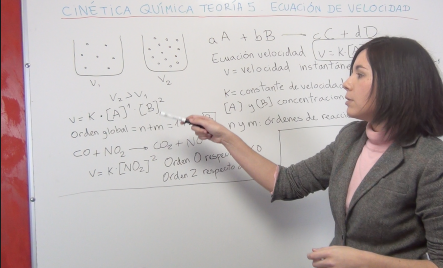 CINÉTICA QUÍMICA TEORÍA 5. ECUACIÓN DE VELOCIDAD
V₁
V₂
V₂ > V₁
v = K · [A]¹ · [B]²
Orden global = n+m = 1
CO + NO₂ → CO₂ + NO
v = K · [NO₂]² Orden 0 respecto CO
Orden 2 respecto
aA + bB → cC + dD
Ecuación velocidad v = K
v = velocidad instantáne
K = constante de velocidad
[A] y [B] concentracion
n y m: órdenes de reac